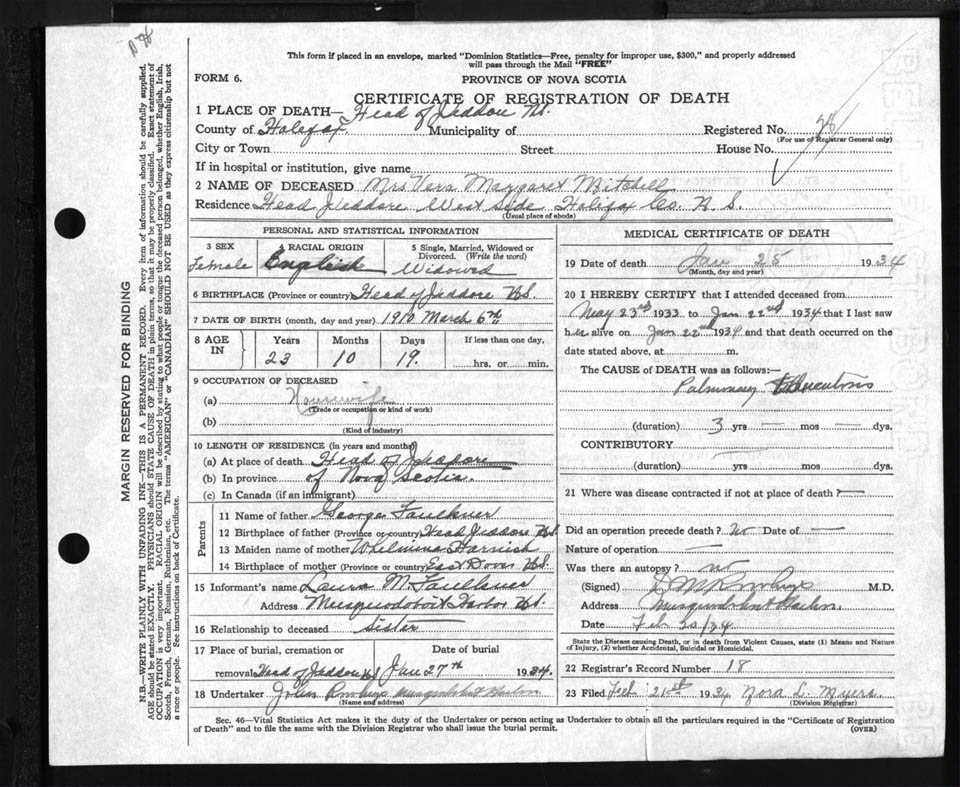 This form if placed in an envelope, marked "Dominion Statistics—Free, penalty for improper use, $300," and properly addressed
will pass through the Mail "FREE"
FORM 6. PROVINCE OF NOVA SCOTIA
CERTIFICATE OF REGISTRATION OF DEATH
1 PLACE OF DEATH— Head of Jeddore N.S.
County of Halifax Municipality of Registered No.
(For use of Registrar General only)
City or Town Street House No.
If in hospital or institution, give name
2 NAME OF DECEASED Mrs Vera Margaret Mitchell
Residence Head Jeddore West Side Halifax Co. N.S.
(Usual place of abode)
PERSONAL AND STATISTICAL INFORMATION
3 SEX Female
4 RACIAL ORIGIN English
5 Single, Married, Widowed or
Divorced. (Write the word)
Widowed
6 BIRTHPLACE (Province or country) Head of Jeddore N.S.
7 DATE OF BIRTH (month, day and year) 1910 March 6th
8 AGE IN Years Months Days If less than one day,
23 10 19 hrs. or min.
9 OCCUPATION OF DECEASED
(a) Housewife
(Trade or occupation or kind of work)
(b)
(Kind of industry)
10 LENGTH OF RESIDENCE (in years and months)
(a) At place of death Head of Jeddore
(b) In province of Nova Scotia.
(c) In Canada (if an immigrant)
Parents
11 Name of father George Faulkner
12 Birthplace of father (Province or country) Head Jeddore N.S.
13 Maiden name of mother Whelmina Harnish
14 Birthplace of mother (Province or country) East Dover N.S.
15 Informant's name Laura M. Faulkner
Address Musquodoboit Harbor N.S.
16 Relationship to deceased sister
17 Place of burial, cremation or Date of burial
removal Head of Jeddore N.S. Jan 27th 1934.
18 Undertaker John
(Name and address)
MEDICAL CERTIFICATE OF DEATH
19 Date of death Jan 25 1934
(Month, day and year)
20 I HEREBY CERTIFY that I attended deceased from
May 23rd 1933 to Jan 22nd 1934 that I last saw
her alive on Jan 22nd 1934 and that death occurred on the
date stated above, at m.
The CAUSE of DEATH was as follows:—
Pulmonary Tuberculosis
(duration) 3 yrs — mos — dys.
CONTRIBUTORY
(duration) — yrs mos dys.
21 Where was disease contracted if not at place of death? —
Did an operation precede death? No Date of —
Nature of operation —
Was there an autopsy? no
(Signed) M.D.
Address Musquodoboit Harbor
Date Feb 20/34
State the Disease causing Death, or in death from Violent Causes, state (1) Means and Nature
of Injury, (2) whether Accidental, Suicidal or Homicidal.
22 Registrar's Record Number 18
23 Filed Feb 21st 1934 Nora L. Myers
(Division Registrar)
Sec. 46—Vital Statistics Act makes it the duty of the Undertaker or person acting as Undertaker to obtain all the particulars required in the "Certificate of Registration
of Death" and to file the same with the Division Registrar who shall issue the burial permit. (OVER)
MARGIN RESERVED FOR BINDING
N.B.—WRITE PLAINLY WITH UNFADING INK—THIS IS A PERMANENT RECORD. Every item of information should be carefully supplied.
AGE should be stated EXACTLY. PHYSICIANS should STATE CAUSE OF DEATH in plain terms, so that it may be properly classified. Exact statement of
OCCUPATION is very important. RACIAL ORIGIN will be described by stating to what people or tongue the deceased person belonged, whether English, Irish,
Scotch, French, German, Russian, Ruthenian, etc. The terms "AMERICAN" or "CANADIAN" SHOULD NOT BE USED as they express citizenship but not
a race or people. See instructions on back of Certificate.